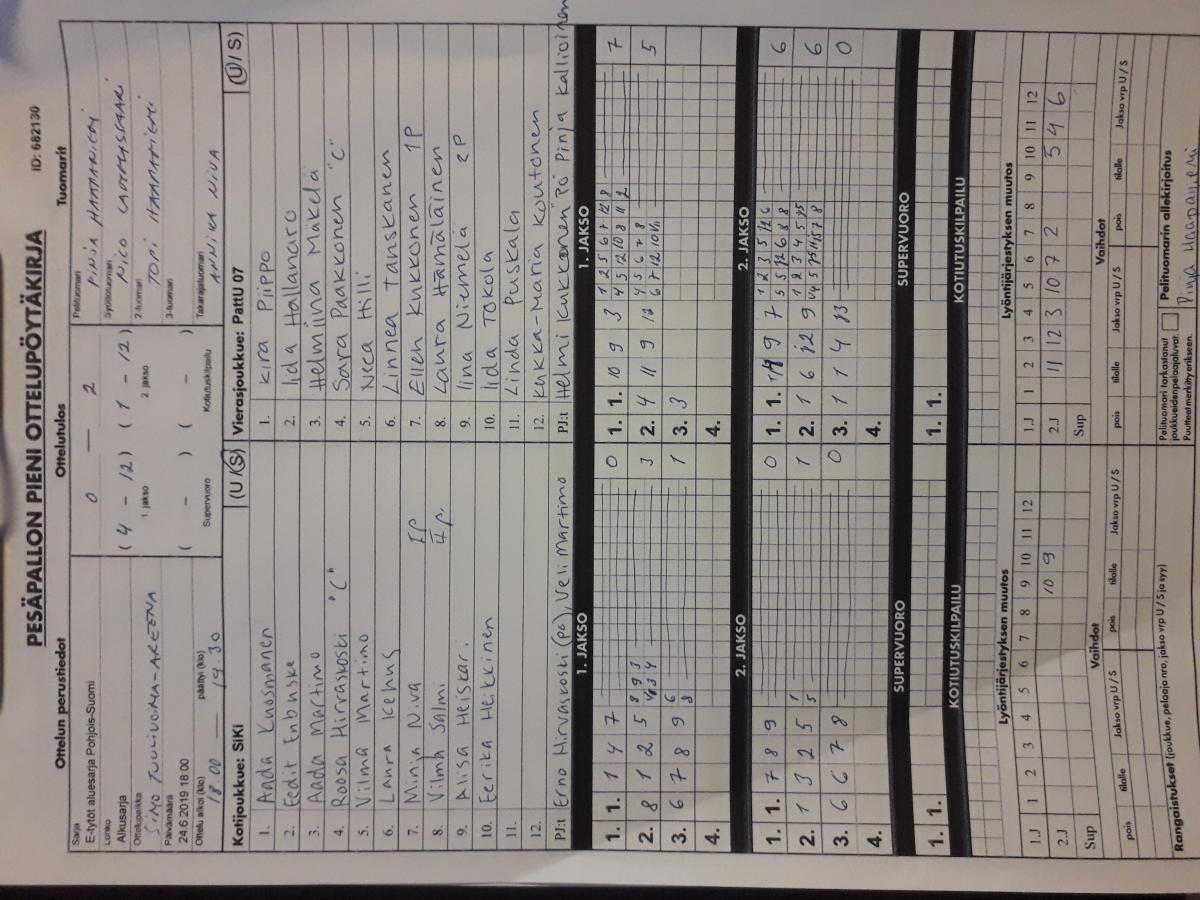 PESÄPALLON PIENI OTTELUPÖYTÄKIRJA ID: 682130
Ottelun perustiedot Ottelutulos Tuomarit
Sarja
E-tytöt aluesarja Pohjois-Suomi
Lohko
Alkusarja
Ottelupaikka
SIMO TUULIVOIMA-AREENA
Päivämäärä
24.6.2019 18:00
Ottelu alkoi (klo) päättyi (klo)
18:00 19.30
0 — 2
( 4 - 12 ) ( 1 - 12 )
1. jakso 2. jakso
( - ) ( - )
Supervuoro Kotiutuskilpailu
Pelituomari
PINJA HAAPANIEMI
Syöttötuomari
NICO
2-tuomari
TOPI HAAPANIEMI
3-tuomari
Takarajatuomari
ANNIKA NIVA
Kotijoukkue: SiKi (U / S)
1. Aada Kuosmanen
2. Eedit Enbuske
3. Aada Martimo
4. Roosa Hirvaskoski "C"
5. Vilma Martimo
6. Laura Kehus
7. Minja Niva Ip
8. Vilma Salmi II p.
9. Alisa Heiskari
10. Eerika Heikkinen
11.
12.
PJ:t Erno Hirvaskoski (pö), Veli Martimo
Vierasjoukkue: PattU 07 (U / S)
1. Kira Piippo
2. Iida Hallanaro
3. Helmiina Mäkelä
4. Saara Paakkonen "C"
5. Neea Hilli
6. Linnea Tanskanen
7. Ellen Kukkonen 1P
8. Laura Hämäläinen
9. Iina Niemelä 2P
10. Iida Tokola
11. Linda Puskala
12. Kukka-Maria Koutonen
PJ:t Helmi Kukkonen Pö Pinja Kallioinen
1. JAKSO 1. JAKSO
1. 1. 1 4 7 0
2. 8 1 2 5 3
3. 6 7 8 9 1
4.
1. 1. 10 9 3 7
2. 4 11 9 12 5
3. 3
4.
2. JAKSO 2. JAKSO
1. 1. 7 8 9 0
2. 1 3 2 5 1
3. 6 6 7 8 0
4.
1. 1. 9 7 6
2. 1 6 12 9 6
3. 1 4 0
4.
SUPERVUORO SUPERVUORO
1. 1. 1. 1.
KOTIUTUSKILPAILU KOTIUTUSKILPAILU
Lyöntijärjestyksen muutos Lyöntijärjestyksen muutos
1.J 1 2 3 4 5 6 7 8 9 10 11 12
2.J 10 9
Sup
1.J 1 2 3 4 5 6 7 8 9 10 11 12
2.J 11 12 3 10 7 2 5 4 6
Sup
Vaihdot Vaihdot
pois tilalle Jakso vrp U / S pois tilalle Jakso vrp U / S
pois tilalle Jakso vrp U / S pois tilalle Jakso vrp U / S
Rangaistukset (joukkue, pelaaja nro, jakso vrp U / S ja syy)
Pelituomari tarkastanut
joukkueiden pelaajaluvat.
Puutteet merkitty erikseen.
Pelituomarin allekirjoitus
Pinja Haapaniemi